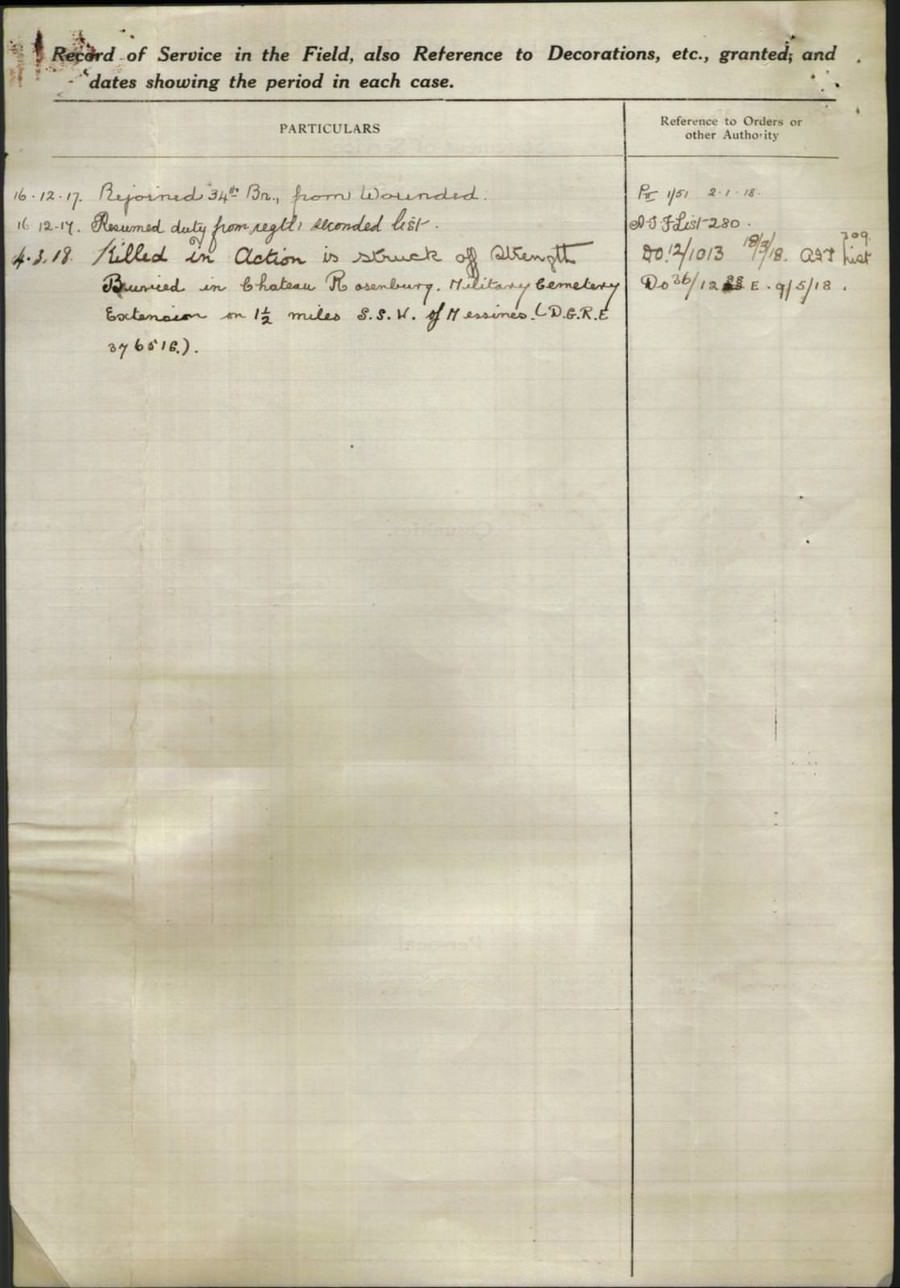 Record of Service in the Field, also Reference to Decorations, etc., granted; and
dates showing the period in each case.
PARTICULARS
Reference to Orders or
other Authority
16.12.17. Rejoined 34th Bn., from Wounded. 1/51 2.1.18.
16.12.17. Resumed duty from regtl. seconded list. A.I.F List 280.
4.3.18. Killed in Action is struck off Strength DO.12/1013 18/3/18. List 309
Buried in Chateau Rosenburg. Military Cemetery Do 36/12 E. 9/5/18.
Extension on 1½ miles S.S.W. of Messines. (D.G.R.E
376516.).